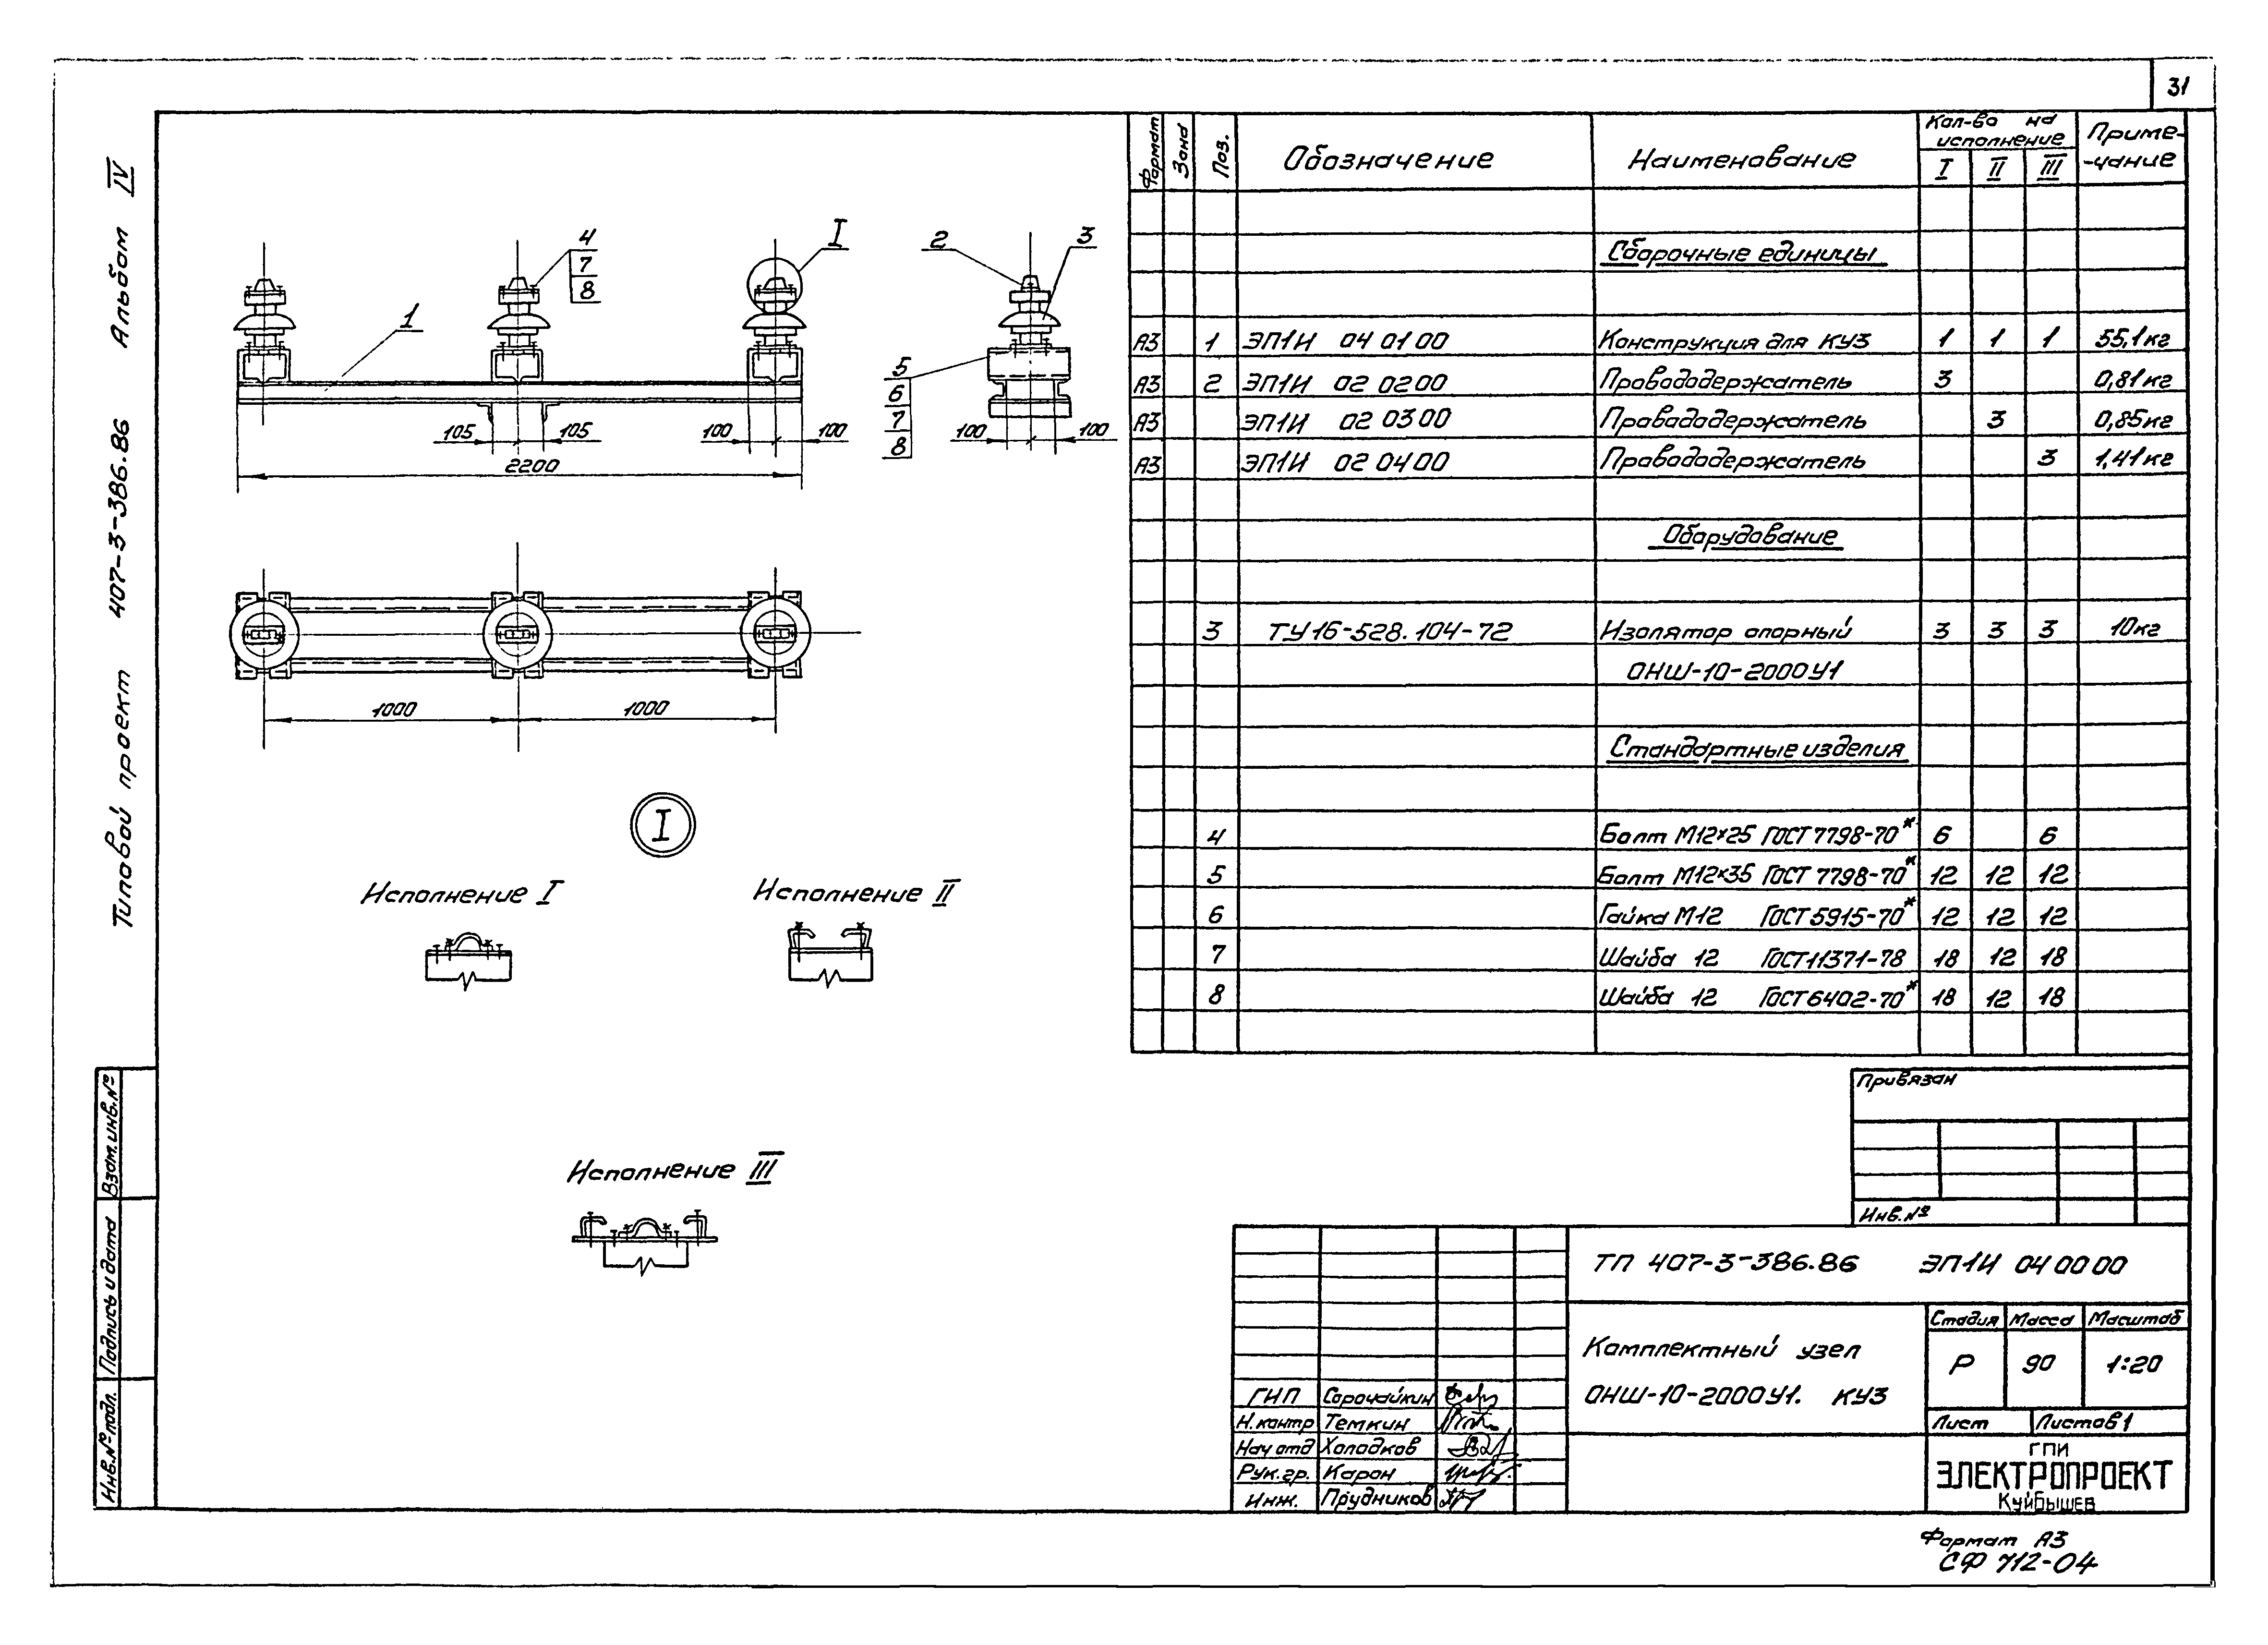 31
Типовой проект 407-3-386.86 Альбом IV
4
7
8
I
2
3
1
5
6
7
8
105 105 100 100
100 100
2200
1000 1000
I
Исполнение I
Исполнение II
Исполнение III
Формат Зона Поз. Обозначение Наименование Кол-во на исполнение I II III Приме-
-чание
Сборочные единицы
А3 1 ЭП1И 04 01 00 Конструкция для КУ3 1 1 1 55,1кг
А3 2 ЭП1И 02 02 00 Провододержатель 3 0,81кг
А3 ЭП1И 02 03 00 Провододержатель 3 0,85кг
А3 ЭП1И 02 04 00 Провододержатель 3 1,41кг
Оборудование
3 ТУ16-528.104-72 Изолятор опорный 3 3 3 10кг
ОНШ-10-2000У1
Стандартные изделия
4 Болт М12×25 ГОСТ 7798-70* 6 6
5 Болт М12×35 ГОСТ 7798-70* 12 12 12
6 Гайка М12 ГОСТ 5915-70* 12 12 12
7 Шайба 12 ГОСТ 11371-78 18 12 18
8 Шайба 12 ГОСТ 6402-70* 18 12 18
Привязан
Инв.№
ТП 407-3-386.86 ЭП1И 04 00 00
Комплектный узел
ОНШ-10-2000У1. КУ3
Стадия Масса Масштаб
Р 90 1:20
Лист Листов 1
ГПИ
ЭЛЕКТРОПРОЕКТ
Куйбышев
ГИП Сорочайкин
Н.контр Темкин
Нач отд Холодков
Рук.гр. Карон
Инж. Прудников
Взам.инв.№
Подпись и дата
Инв.№подл.
Формат А3
СФ 712-04